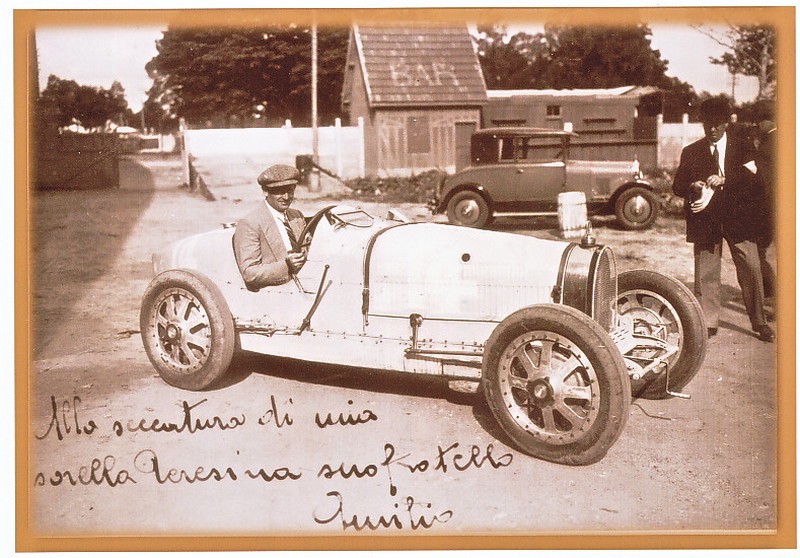 BAR
Alla seccatura di mia
sorella Teresina suo fratello